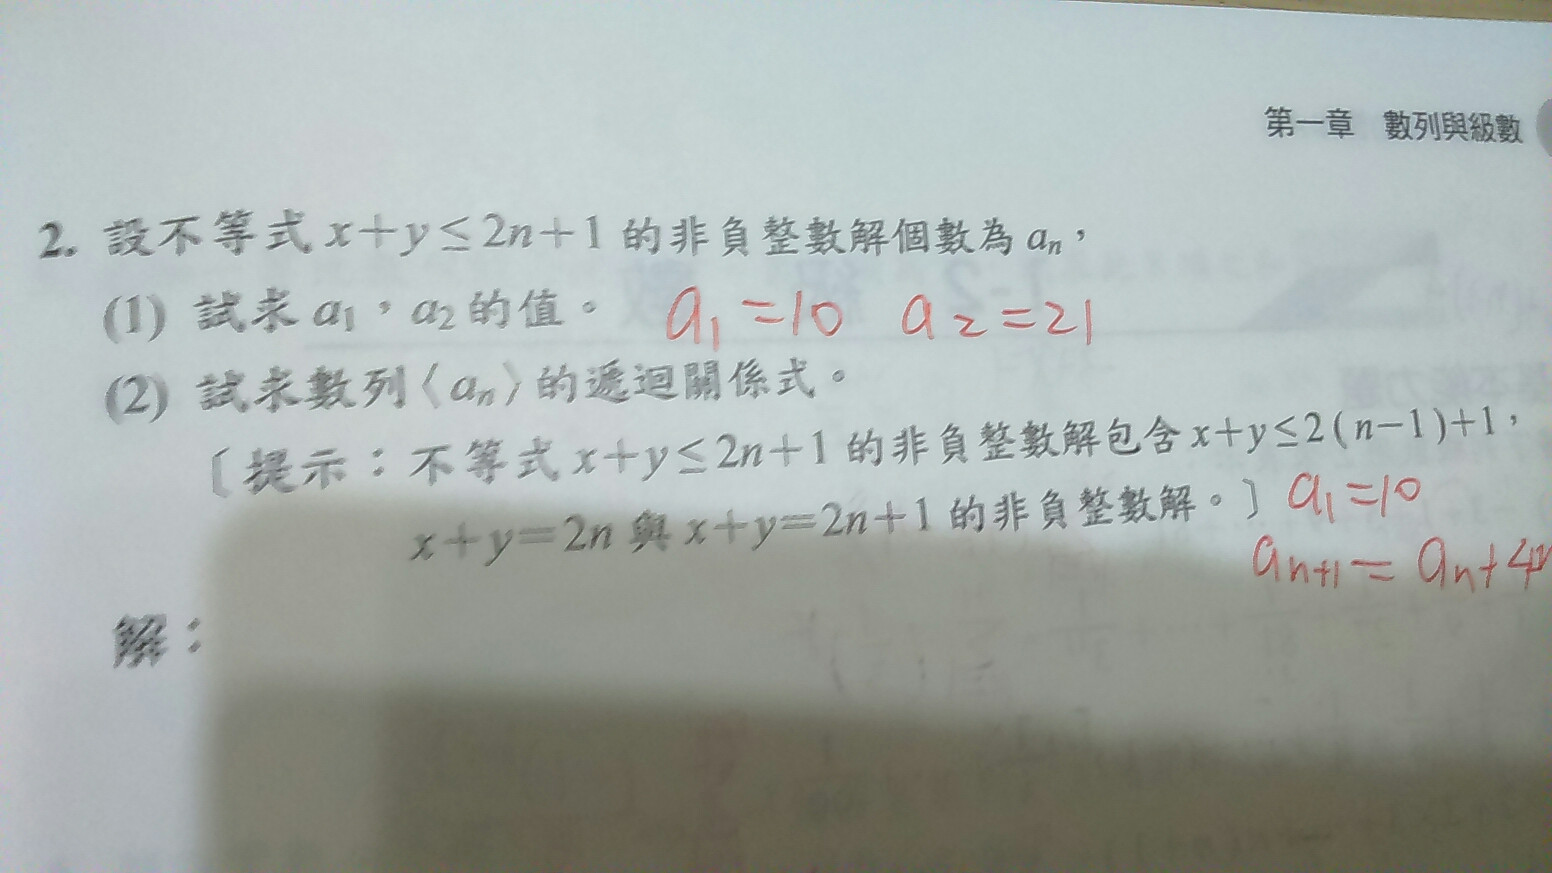 第一章 數列與級數
2. 設不等式 x+y≤2n+1 的非負整數解個數為 aₙ，
(1) 試求 a₁，a₂ 的值。 a₁=10 a₂=21
(2) 試求數列〈aₙ〉的遞迴關係式。
〔提示：不等式 x+y≤2n+1 的非負整數解包含 x+y≤2(n−1)+1，
x+y=2n 與 x+y=2n+1 的非負整數解。〕 a₁=10
aₙ₊₁=aₙ+4n
解：